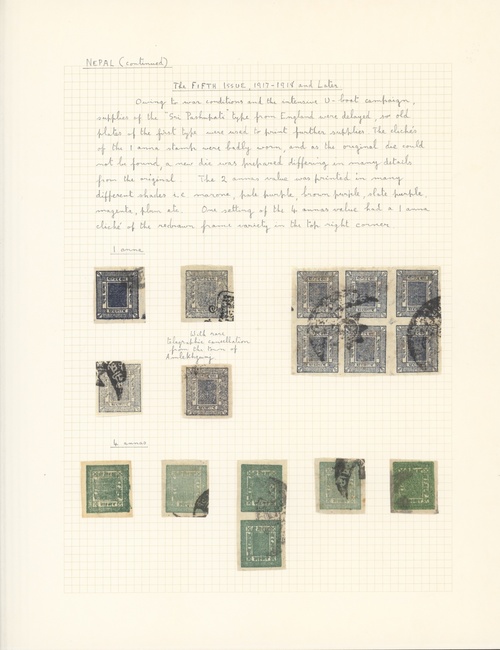 NEPAL (continued)
The FIFTH ISSUE, 1917-1918 and Later
Owing to war conditions and the intensive U-boat campaign,
supplies of the "Sri Pashupati" type from England were delayed, so old
plates of the first type were used to print further supplies. The clichés
of the 1 anna stamp were badly worn, and as the original die could
not be found, a new die was prepared differing in many details
from the original. The 2 annas value was printed in many
different shades i.e. marone, pale purple, brown purple, slate purple,
magenta, plum etc. One setting of the 4 annas value had a 1 anna
cliché of the redrawn frame variety in the top right corner
1 anna
With rare
telegraphic cancellation
from the town of
Amlekhganj
4 annas